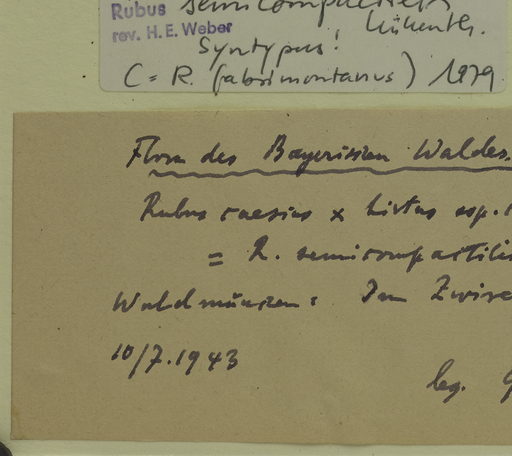 Rubus semicompactilis
rev. H. E. Weber
Syntypus!
(= R. fabrimontanus) 1979
Flora des Bayerischen Waldes.
Rubus caesius x hirtus ssp.
= R. semicompactilis
Waldmünchen: Im
10/7.1943
leg.